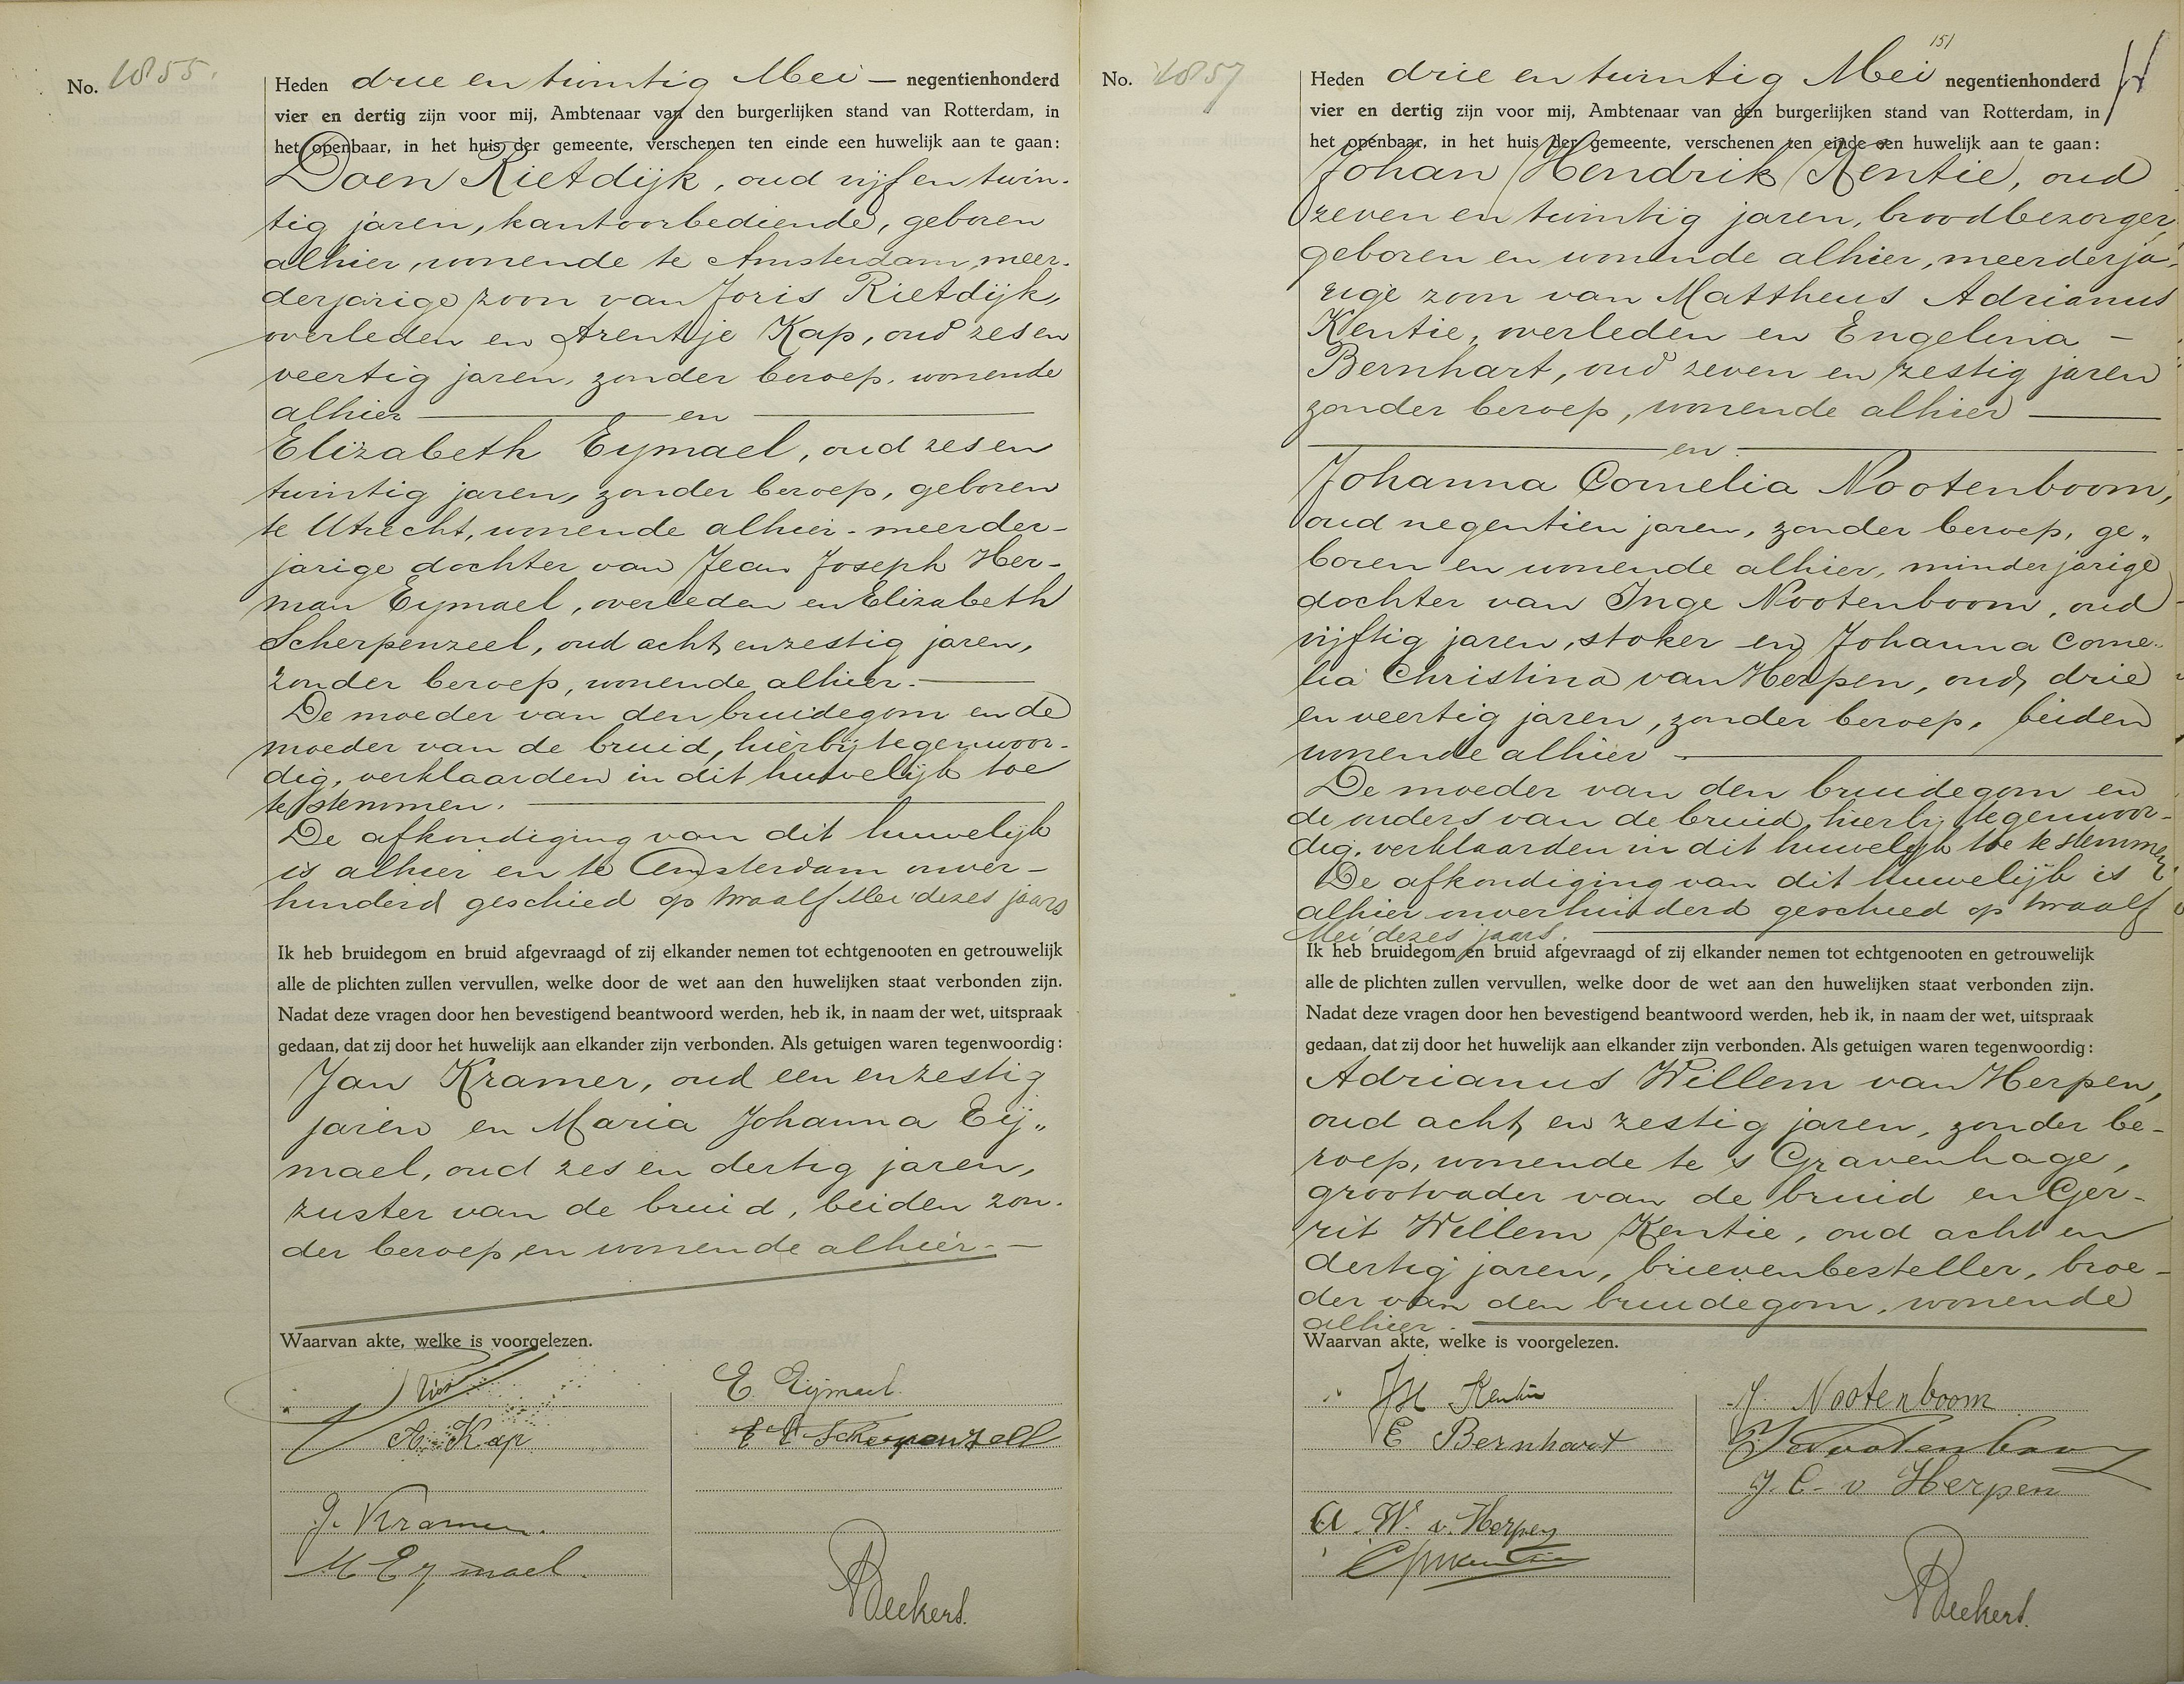 No. 1855.
Heden drie en twintig Mei — negentienhonderd
vier en dertig zijn voor mij, Ambtenaar van den burgerlijken stand van Rotterdam, in
het openbaar, in het huis der gemeente, verschenen ten einde een huwelijk aan te gaan:
Daen Rietdijk, oud vijf en twin-
tig jaren, kantoorbediende, geboren
alhier, wonende te Amsterdam, meer-
derjarige zoon van Joris Rietdijk,
overleden en Arentje Kap, oud zes en
veertig jaren, zonder beroep, wonende
alhier — en —
Elizabeth Eymael, oud zes en
twintig jaren, zonder beroep, geboren
te Utrecht, wonende alhier - meerder-
jarige dochter van Jean Joseph Her-
man Eymael, overleden en Elizabeth
Scherpenzeel, oud acht en zestig jaren,
zonder beroep, wonende alhier. —
De moeder van den bruidegom en de
moeder van de bruid, hierbij tegenwoor-
dig, verklaarden in dit huwelijk toe
te stemmen. —
De afkondiging van dit huwelijk
is alhier en te Amsterdam onver-
hinderd geschied op twaalf Mei dezes jaars
Ik heb bruidegom en bruid afgevraagd of zij elkander nemen tot echtgenooten en getrouwelijk
alle de plichten zullen vervullen, welke door de wet aan den huwelijken staat verbonden zijn.
Nadat deze vragen door hen bevestigend beantwoord werden, heb ik, in naam der wet, uitspraak
gedaan, dat zij door het huwelijk aan elkander zijn verbonden. Als getuigen waren tegenwoordig:
Jan Kramer, oud een en zestig
jaren en Maria Johanna Eij„
mael, oud zes en dertig jaren,
zuster van de bruid, beiden zon-
der beroep en wonende alhier. —
Waarvan akte, welke is voorgelezen.
E. Eijmael
A. Kap
Scherpenzeel
J. Kramer.
M Eymael.
Beekers.
151
No. 1857
Heden drie en twintig Mei negentienhonderd
vier en dertig zijn voor mij, Ambtenaar van den burgerlijken stand van Rotterdam, in
het openbaar, in het huis der gemeente, verschenen ten einde een huwelijk aan te gaan:
Johan Hendrik Kentie, oud
zeven en twintig jaren, broodbezorger,
geboren en wonende alhier, meerderja-
rige zoon van Mattheus Adrianus
Kentie, overleden en Engelina —
Bernhart, oud zeven en zestig jaren
zonder beroep, wonende alhier —
— en —
Johanna Cornelia Nootenboom,
oud negentien jaren, zonder beroep, ge„
boren en wonende alhier, minderjarige
dochter van Inge Nootenboom, oud
vijftig jaren, stoker en Johanna Corne-
lia Christina van Herpen, oud drie
en veertig jaren, zonder beroep, beiden
wonende alhier —
De moeder van den bruidegom en
de ouders van de bruid, hierbij tegenwoor-
dig, verklaarden in dit huwelijk toe te stemmen
De afkondiging van dit huwelijk is
alhier onverhinderd geschied op twaalf
Mei dezes jaars. —
Ik heb bruidegom en bruid afgevraagd of zij elkander nemen tot echtgenooten en getrouwelijk
alle de plichten zullen vervullen, welke door de wet aan den huwelijken staat verbonden zijn.
Nadat deze vragen door hen bevestigend beantwoord werden, heb ik, in naam der wet, uitspraak
gedaan, dat zij door het huwelijk aan elkander zijn verbonden. Als getuigen waren tegenwoordig:
Adrianus Willem van Herpen,
oud acht en zestig jaren, zonder be-
roep, wonende te 's Gravenhage,
grootvader van de bruid en Ger-
rit Willem Kentie, oud acht en
dertig jaren, brievenbesteller, broe-
der van den bruidegom, wonende
alhier. —
Waarvan akte, welke is voorgelezen.
JH Kentie
J. Nootenboom
E Bernhart
I Nootenboom
J. C. v Herpen
A. W. v. Herpen
GWKentie
Beekers.